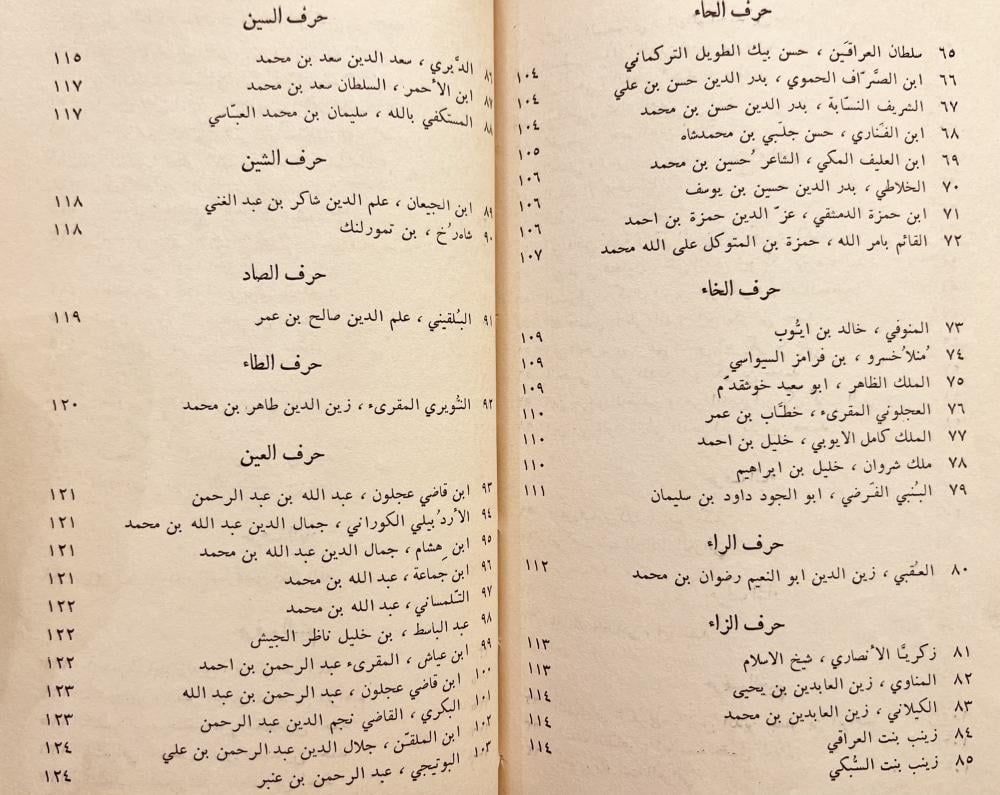 حرف الحاء
٦٥ سلطان العراقَين ، حسن بيك الطويل التركماني ١٠٤
٦٦ ابن الصَّرّاف الحموي ، بدر الدين حسن بن علي ١٠٤
٦٧ الشريف النسّابة ، بدر الدين حسن بن محمد ١٠٤
٦٨ ابن الفَناري ، حسن جلَبي بن محمدشاه ١٠٥
٦٩ ابن العليف المكي ، الشاعر حُسين بن محمد ١٠٦
٧٠ الخلاطي ، بدر الدين حسين بن يوسف ١٠٦
٧١ ابن حمزة الدمشقي ، عزّ الدين حمزة بن احمد ١٠٦
٧٢ القائم بامر الله ، حمزة بن المتوكل على الله محمد ١٠٧
حرف الخاء
٧٣ المنوفي ، خالد بن ايّوب ١٠٩
٧٤ مُنلا خُسرو ، بن فرامز السيواسي ١٠٩
٧٥ الملك الظاهر ، ابو سعيد خوشقدّم ١٠٩
٧٦ العجلوني المقرىء ، خطَّاب بن عمر ١١٠
٧٧ الملك كامل الايوبي ، خليل بن احمد ١١٠
٧٨ ملك شروان ، خليل بن ابراهيم ١١٠
٧٩ البُنبي الفَرضي ، ابو الجود داود بن سليمان ١١١
حرف الراء
٨٠ العُقبي ، زين الدين ابو النعيم رضوان بن محمد ١١٢
حرف الزاء
٨١ زكريَّا الأنصاري ، شيخ الاسلام ١١٣
٨٢ المناوي ، زين العابدين بن يحيى ١١٣
٨٣ الكيلاني ، زين العابدين بن محمد ١١٤
٨٤ زينب بنت العراقي ١١٤
٨٥ زينب بنت السُّبكي ١١٤
حرف السين
٨٦ الدَّيري ، سعد الدين سعد بن محمد ١١٥
٨٧ ابن الأحمر ، السلطان سعد بن محمد ١١٧
٨٨ المستكفي بالله ، سليمان بن محمد العبّاسي ١١٧
حرف الشين
٨٩ ابن الجيعان ، علم الدين شاكر بن عبد الغني ١١٨
٩٠ شاه رُخ ، بن تمورلنك ١١٨
حرف الصاد
٩١ البُلقيني ، علم الدين صالح بن عمر ١١٩
حرف الطاء
٩٢ النُّويري المقرىء ، زين الدين طاهر بن محمد ١٢٠
حرف العين
٩٣ ابن قاضي عجلون ، عبد الله بن عبد الرحمن ١٢١
٩٤ الأردُبيلي الكوراني ، جمال الدين عبد الله بن محمد ١٢١
٩٥ ابن هِشام ، جمال الدين عبد الله بن محمد ١٢١
٩٦ ابن جماعة ، عبد الله بن محمد ١٢١
٩٧ التّلمساني ، عبد الله بن محمد ١٢٢
٩٨ عبد الباسط ، بن خليل ناظر الجيش ١٢٢
٩٩ ابن عياش ، المقرىء عبد الرحمن بن احمد ١٢٢
١٠٠ ابن قاضي عجلون ، عبد الرحمن بن عبد الله ١٢٣
١٠١ البكري ، القاضي نجم الدين عبد الرحمن ١٢٣
١٠٢ ابن الملقّن ، جلال الدين عبد الرحمن بن علي ١٢٤
١٠٣ البوتيجي ، عبد الرحمن بن عنبر ١٢٤